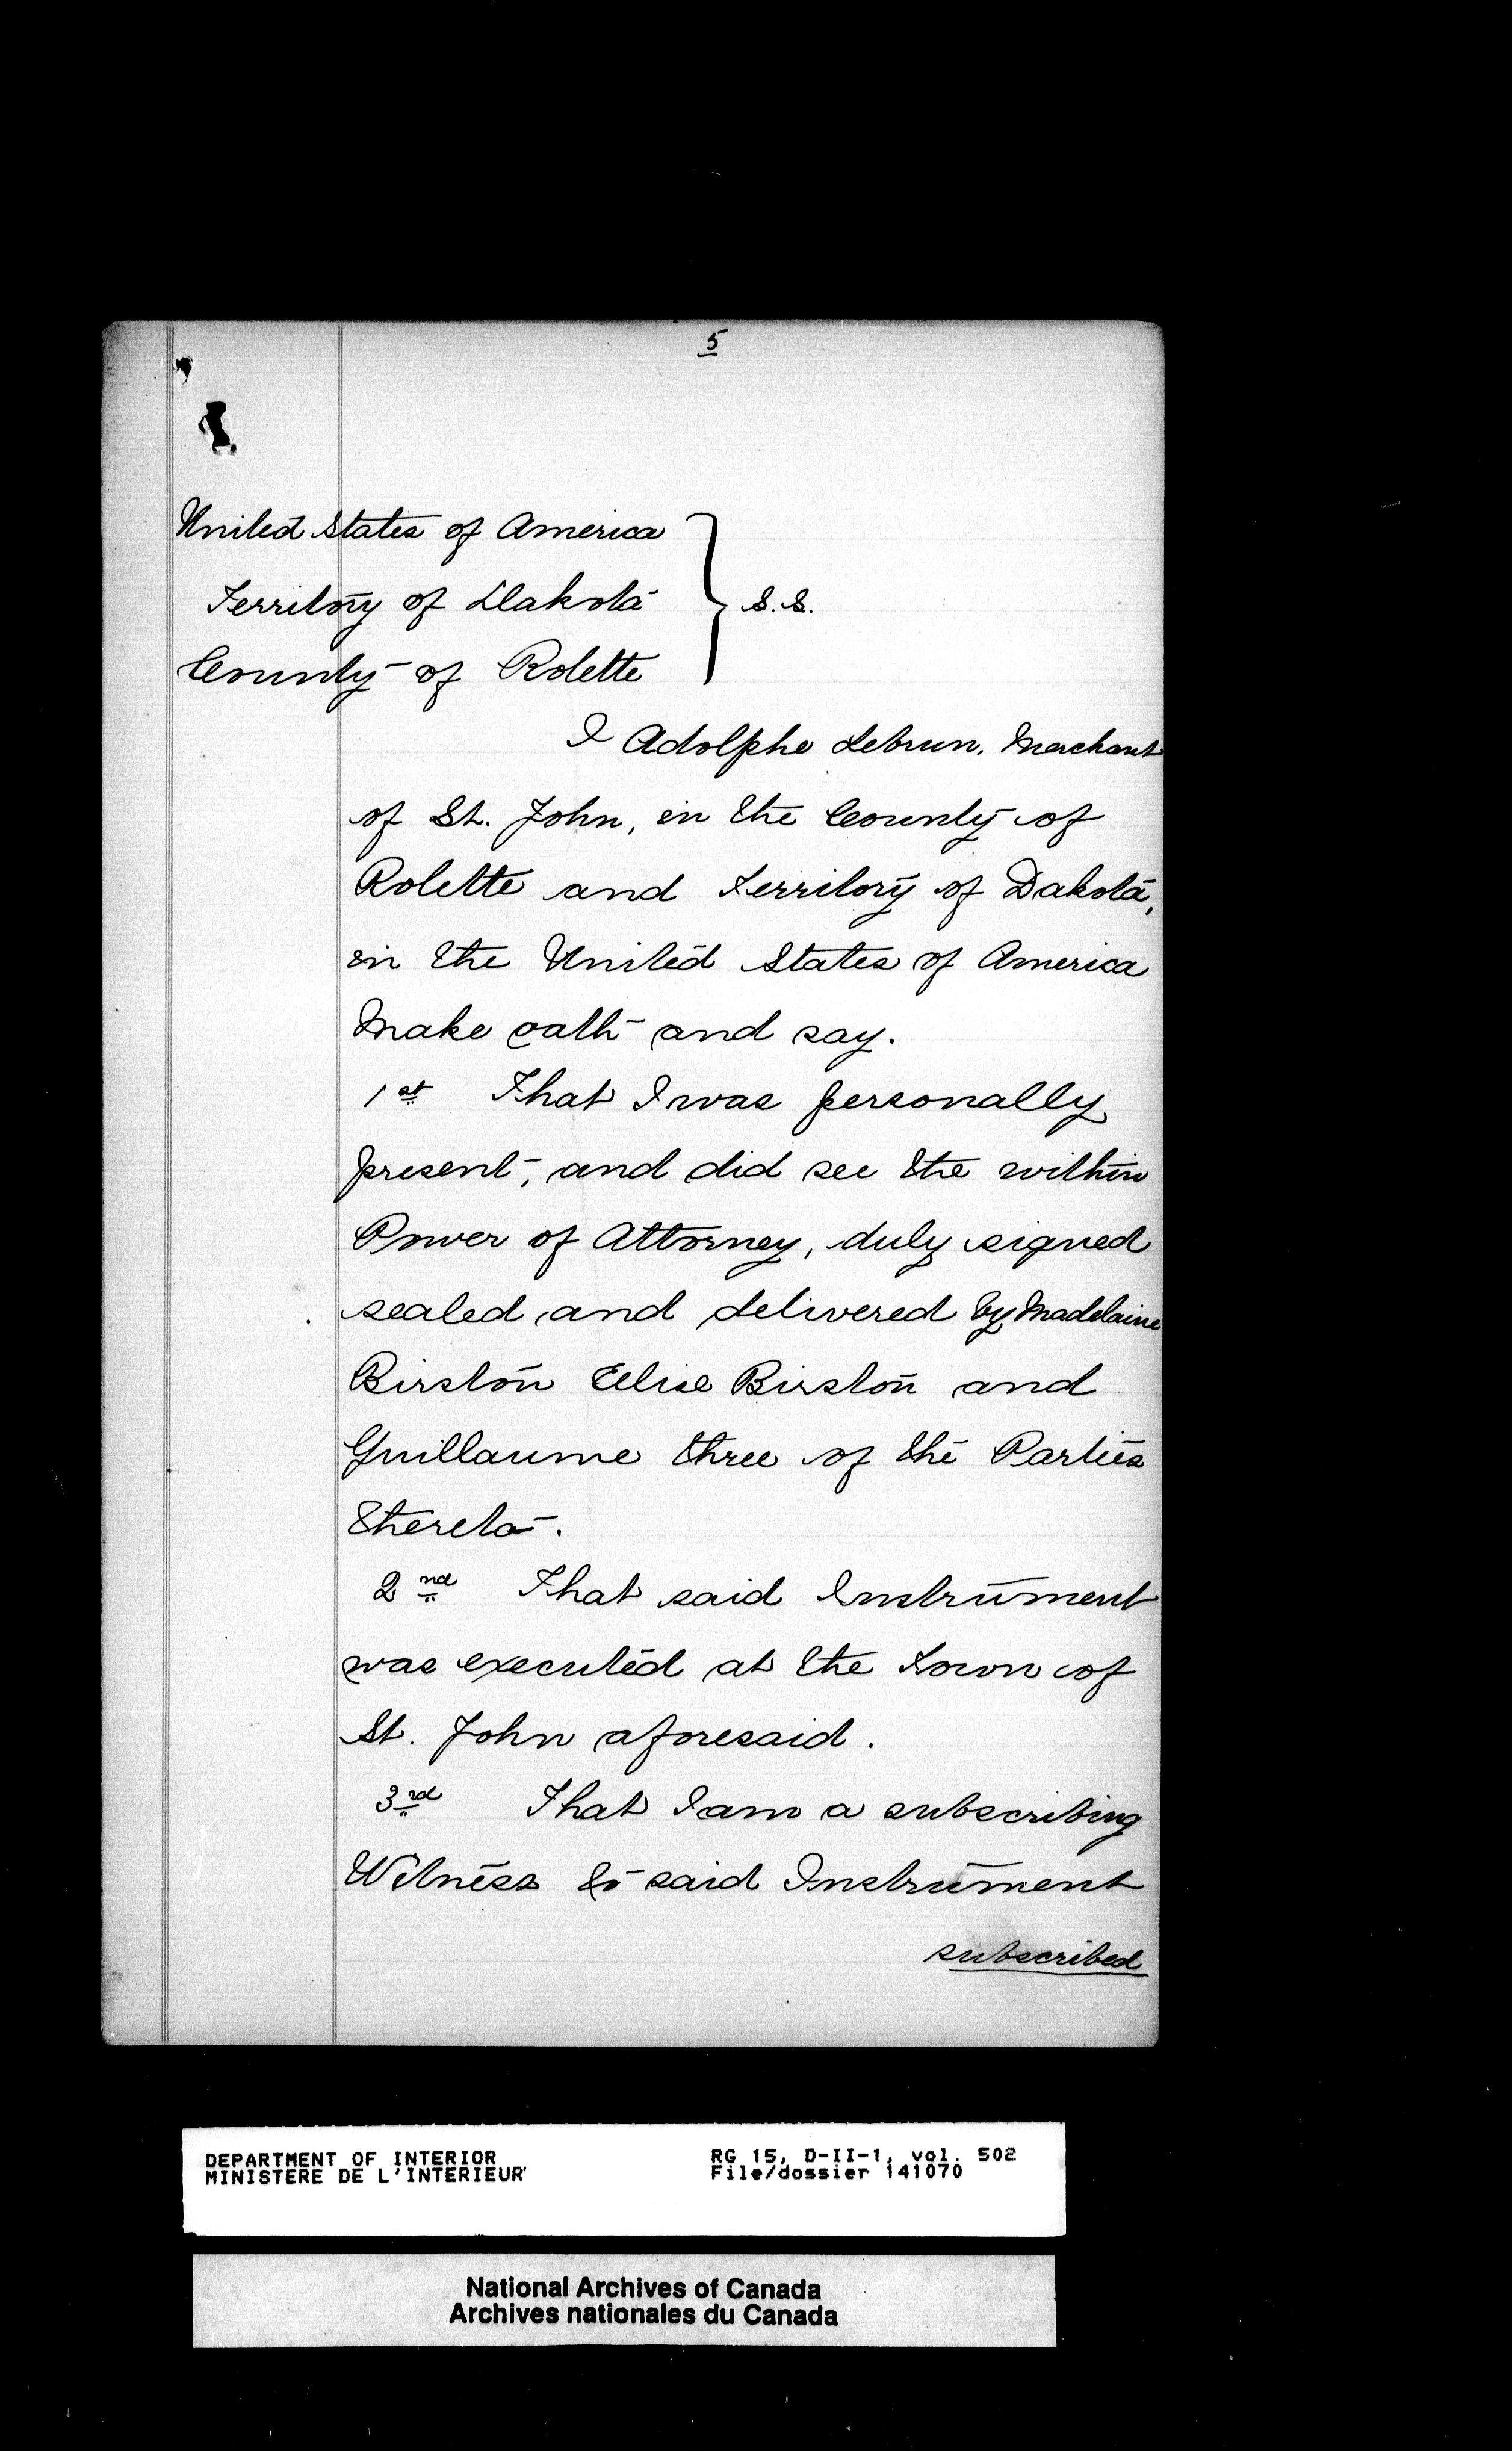 5
United States of America
Territory of Dakota } S.S.
County of Rolette
I Adolphe Lebrun, Merchant
of St. John, in the County of
Rolette and Territory of Dakota,
in the United States of America
Make oath and say.
1st That I was personally
present, and did see the within
Power of Attorney, duly signed
sealed and delivered by Madelaine
Birston Elise Birston and
Guillaume three of the Parties
thereto.
2nd That said Instrument
was executed at the Town of
St. John aforesaid.
3rd That I am a subscribing
Witness to said Instrument
subscribed
DEPARTMENT OF INTERIOR RG 15, D-II-1, vol. 502
MINISTERE DE L'INTERIEUR File/dossier 141070
National Archives of Canada
Archives nationales du Canada